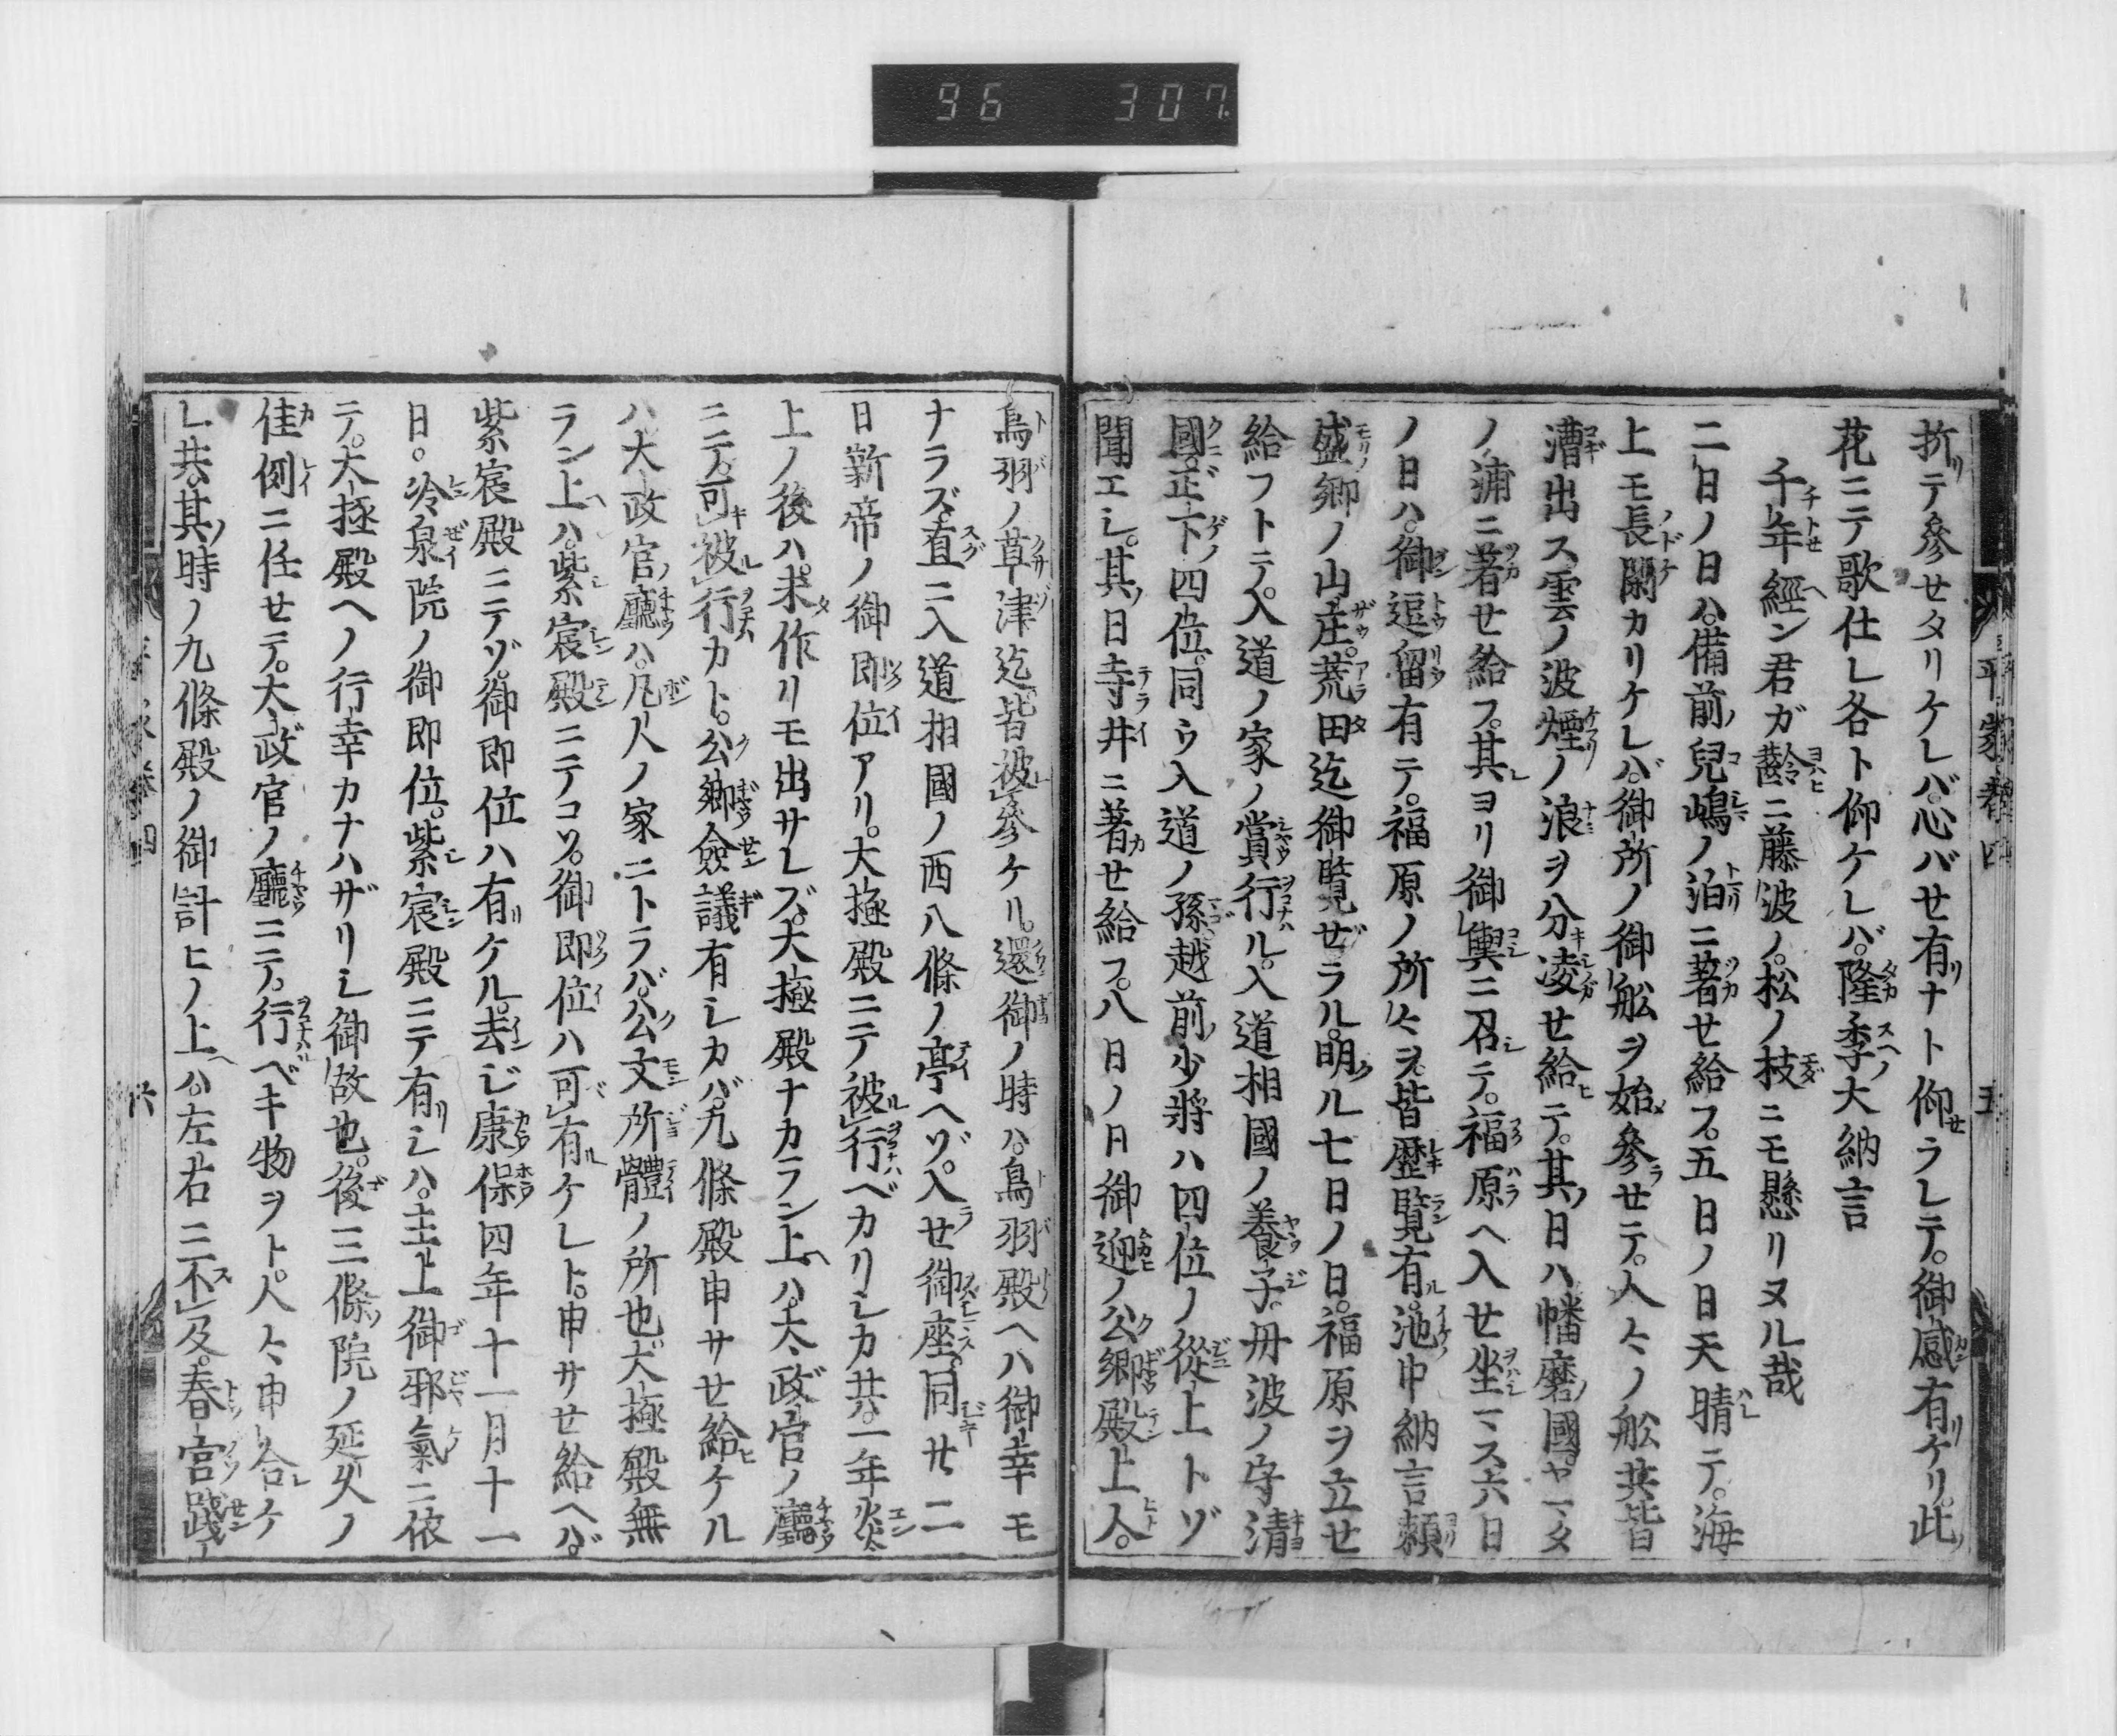 96 307
平家巻四
五
折テ參セタリケレバ。心バセ有ナト仰ラレテ。御感有ケリ。此
花ニテ歌仕レ各ト仰ケレバ。隆季大納言
千年經ン君ガ齡ニ藤波ノ。松ノ枝ニモ懸リヌル哉
二日ノ日ハ。備前兒嶋ノ泊ニ著セ給フ。五日ノ日天晴テ。海
上モ長閑カリケレバ。御所ノ御舩ヲ始參セテ。人々ノ舩共皆
漕出ス雲ノ波煙ノ浪ヲ分凌セ給テ。其日ハ幡磨國。ヤマタ
ノ浦ニ著セ給フ。其ヨリ御輿ニ召テ。福原ヘ入セ坐マス六日
ノ日ハ。御逗留有テ。福原ノ所々ヲ。皆歴覽有。池中納言頼
盛卿ノ山庄。荒田迄御覽ゼラル。明ル七日ノ日。福原ヲ立セ
給フトテ。入道ノ家ノ賞行ル。入道相國ノ養子。丹波ノ守清
國。正下ノ四位。同ウ入道ノ孫越前少將ハ四位ノ從上トゾ
聞エシ。其日寺井ニ著セ給フ。八日ノ日御迎ノ公卿殿上人。
鳥羽ノ草津迄皆被參ケリ。還御ノ時ハ。鳥羽殿ヘハ御幸モ
ナラズ。直ニ入道相國ノ西八條ノ亭ヘゾ。入セ御座。同廿二
日新帝ノ御即位アリ。大極殿ニテ被行ベカリシカ共。一年炎
上ノ後ハ。未作リモ出サレズ。大極殿ナカラン上ハ。太政官ノ廳
ニテ。可被行カト。公卿僉議有シカバ。九條殿申サセ給ケル
ハ。大政官廳ハ。凡人ノ家ニトラバ。公文所體ノ所也。大極殿無
ラン上ハ。紫宸殿ニテコソ。御即位ハ可有ケレト。申サセ給ヘバ。
紫宸殿ニテゾ。御即位ハ有ケル。去ジ康保四年十一月十一
日。冷泉院ノ御即位。紫宸殿ニテ有シハ。主上御邪氣ニ依
テ。大極殿ヘノ行幸カナハザリシ御故也。後三條院ノ延久ノ
佳例ニ任セテ。太政官ノ廳ニテ。行ベキ物ヲト。人々申合ケ
レ共。其時ノ九條殿ノ御計ヒノ上ハ。左右ニ不及。春宮踐
六